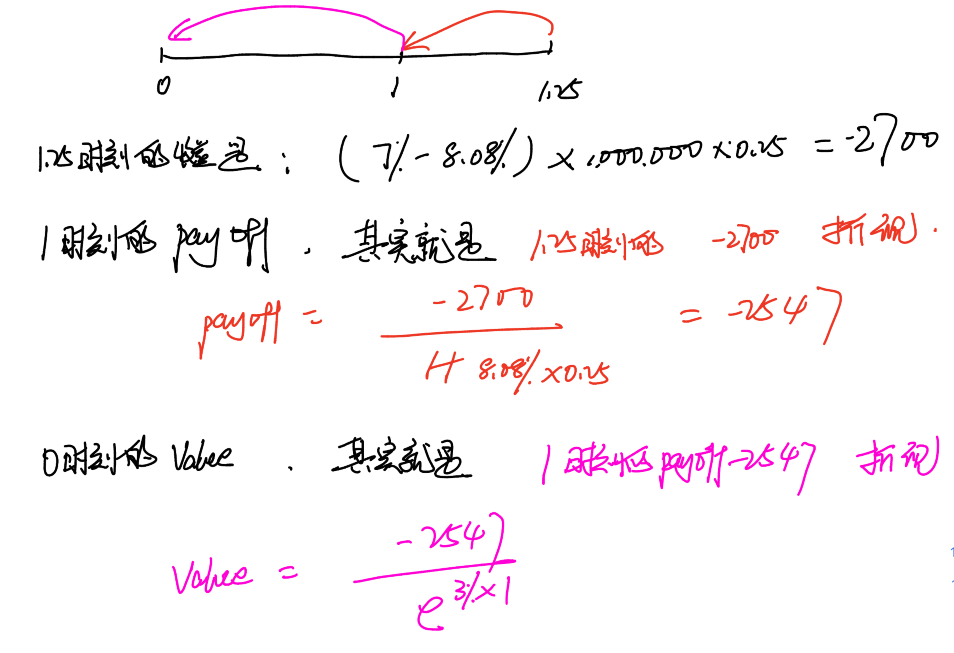 0 1 1.25
1.25时刻的价值是: (7% - 8.08%) × 1,000,000 × 0.25 = -2700
1时刻的 payoff . 其实就是 1.25时刻的 -2700 折现.
payoff = -2700 / 1+ 8.08% × 0.25 = -2547
0时刻的 Value . 其实就是 1时刻的 payoff -2547 折现
Value = -2547 / e^3%×1